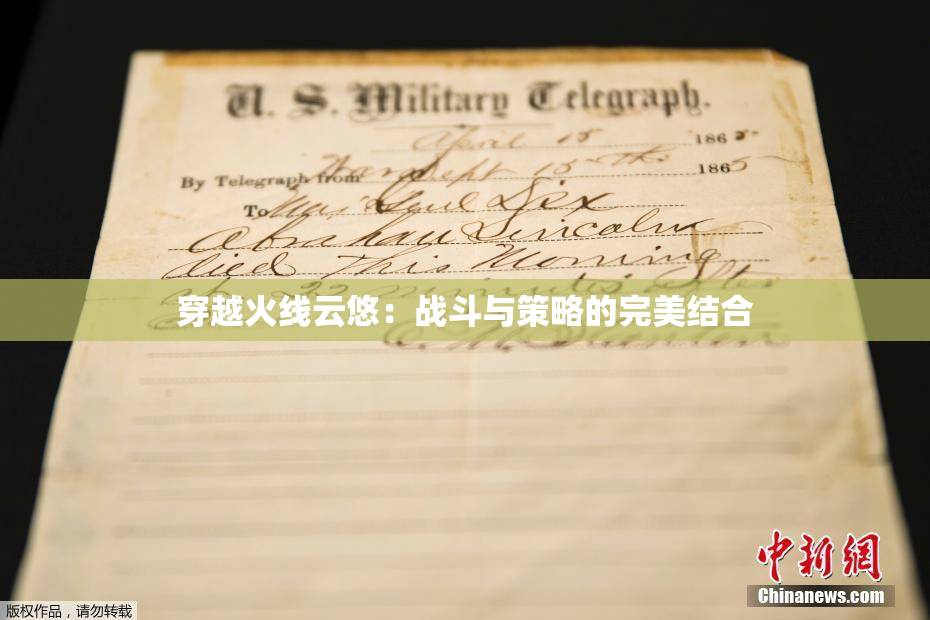 U. S. Military Telegraph.
April 15 1865
By Telegraph from War Dept 15th 1865
To Maj Genl Dix
Abraham Lincoln
died This Morning
at 22 minutes after
穿越火线云悠：战斗与策略的完美结合
中新网
Chinanews.com
版权作品，请勿转载